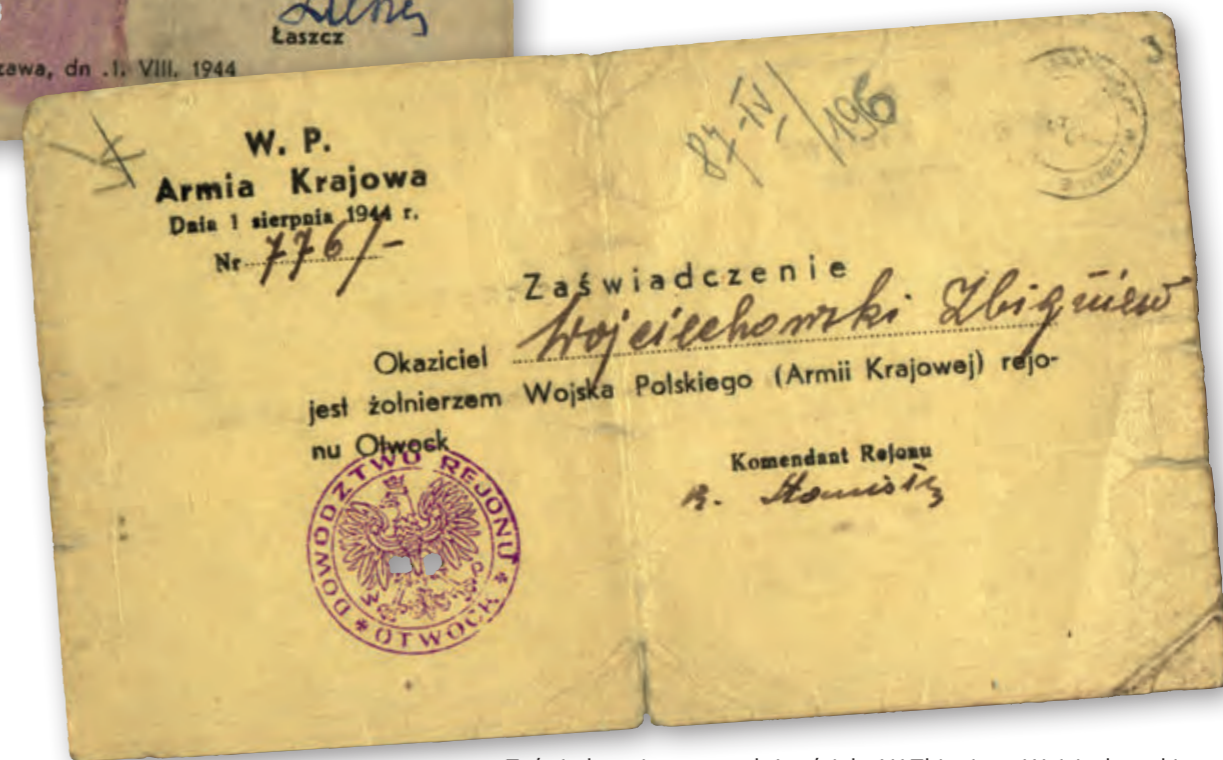 Łaszcz
dn .1. VIII. 1944
W. P.
Armia Krajowa
Dnia 1 sierpnia 1944 r.
Nr 776/-
87-IV/196
3
Zaświadczenie
Okaziciel Wojciechowski Zbigniew
jest żołnierzem Wojska Polskiego (Armii Krajowej) rejo-
nu Otwock
Komendant Rejonu
DOWODZTWO REJONU * OTWOCK *
W P